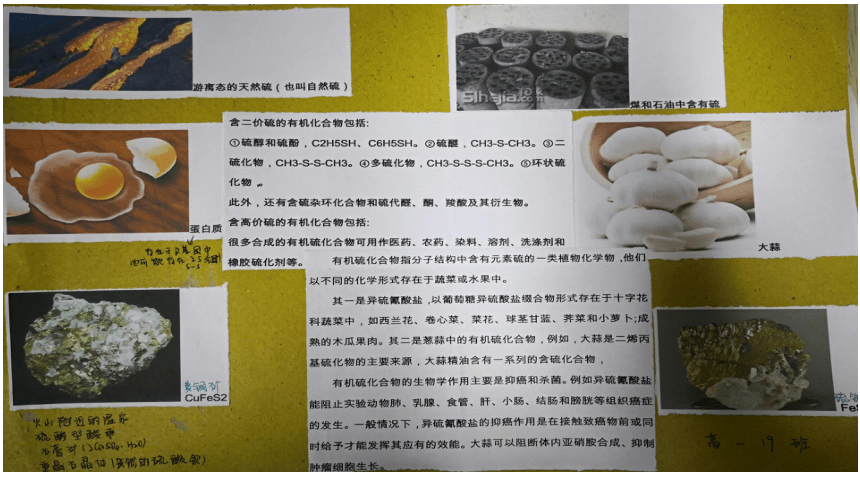 游离态的天然硫（也叫自然硫）
51hejia.com
煤和石油中含有硫
含二价硫的有机化合物包括:
①硫醇和硫酚，C2H5SH、C6H5SH。②硫醚，CH3-S-CH3。③二
硫化物，CH3-S-S-CH3。④多硫化物，CH3-S-S-S-CH3。⑤环状硫
化物。
此外，还有含硫杂环化合物和硫代醛、酮、羧酸及其衍生物。
含高价硫的有机化合物包括:
很多合成的有机硫化合物可用作医药、农药、染料、溶剂、洗涤剂和
橡胶硫化剂等。
蛋白质
大蒜
有机硫化合物指分子结构中含有元素硫的一类植物化学物,他们
以不同的化学形式存在于蔬菜或水果中。
其一是异硫氰酸盐,以葡萄糖异硫酸盐缀合物形式存在于十字花
科蔬菜中，如西兰花、卷心菜、菜花、球茎甘蓝、荠菜和小萝卜;成
熟的木瓜果肉。其二是葱蒜中的有机硫化合物，例如，大蒜是二烯丙
基硫化物的主要来源，大蒜精油含有一系列的含硫化合物，
有机硫化合物的生物学作用主要是抑癌和杀菌。例如异硫氰酸盐
能阻止实验动物肺、乳腺、食管、肝、小肠、结肠和膀胱等组织癌症
的发生。一般情况下，异硫氰酸盐的抑癌作用是在接触致癌物前或同
时给予才能发挥其应有的效能。大蒜可以阻断体内亚硝胺合成、抑制
肿瘤细胞生长。
黄铜矿
CuFeS2
火山附近的温泉
硫酸型酸雨
石膏矿
FeS
高一19班